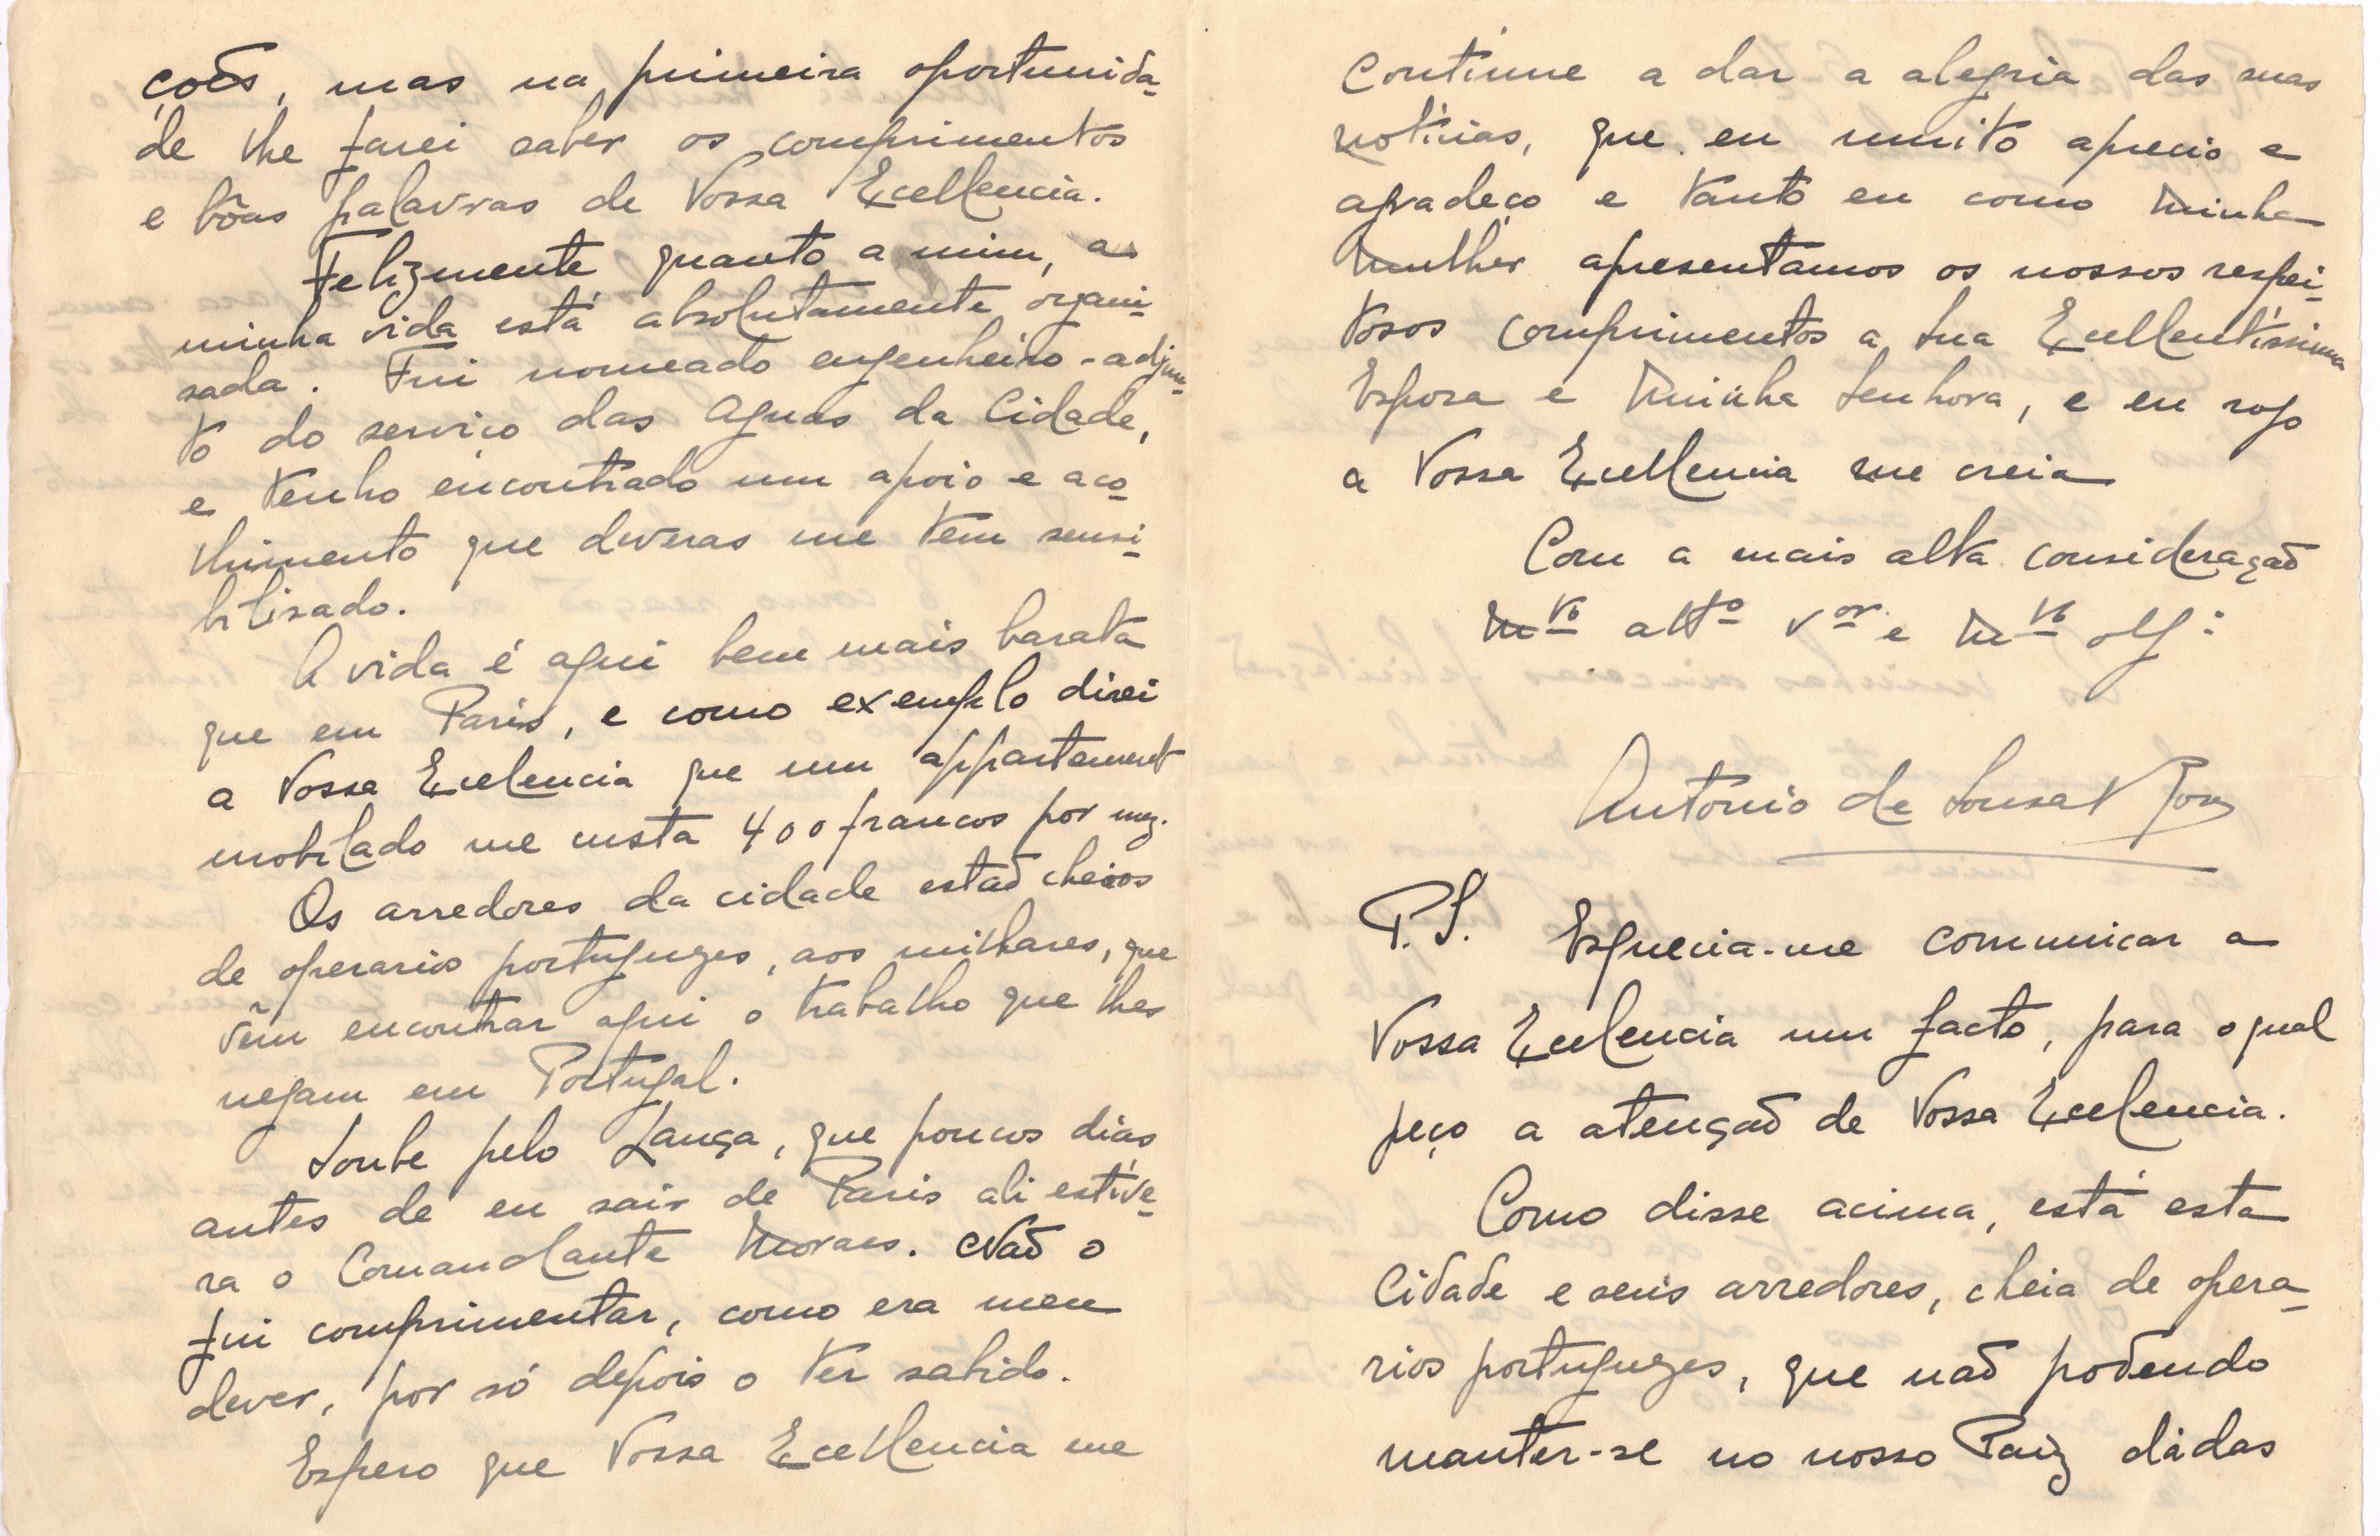 ções, mas na primeira oportunida-
de lhe farei saber os comprimentos
e bôas palavras de Vossa Excellencia.
Felizmente quanto a mim, a
minha vida está absolutamente organi-
sada. Fui nomeado engenheiro-adjun-
to do serviço das Aguas da Cidade,
e tenho encontrado um apoio e aco-
lhimento que deveras me tem sensi-
bilisado.
A vida é aqui bem mais barata
que em Paris, e como exemplo direi
a Vossa Excelencia que um appartement
mobilado me custa 400 francos por mez.
Os arredores da cidade estaõ cheios
de operarios portuguezes, aos milhares, que
vẽm encontrar aqui o trabalho que lhes
negam em Portugal.
Soube pelo Lança, que poucos dias
antes de eu sair de Paris ali estive-
ra o Comandante Moraes. Naõ o
fui comprimentar, como era meu
dever, por só depois o ter sabido.
Espero que Vossa Excellencia me
Continue a dar a alegria das suas
notícias, que eu muito aprecio e
agradeço e tanto eu como Minha
Mulher apresentamos os nossos respei-
tosos comprimentos a Sua Excellentíssima
Esposa e Minha Senhora, e eu rogo
a Vossa Excellencia me creia
Com a mais alta consideraçaõ
Mto attto vor e Mto obg:
António de Sousa
P.S. Esquecia-me comunicar a
Vossa Excelencia um facto, para o qual
peço a atençaõ de Vossa Excelencia.
Como disse acima, está esta
Cidade e seus arredores, cheia de opera-
rios portuguezes, que naõ podendo
manter-se no nosso Paiz dádas